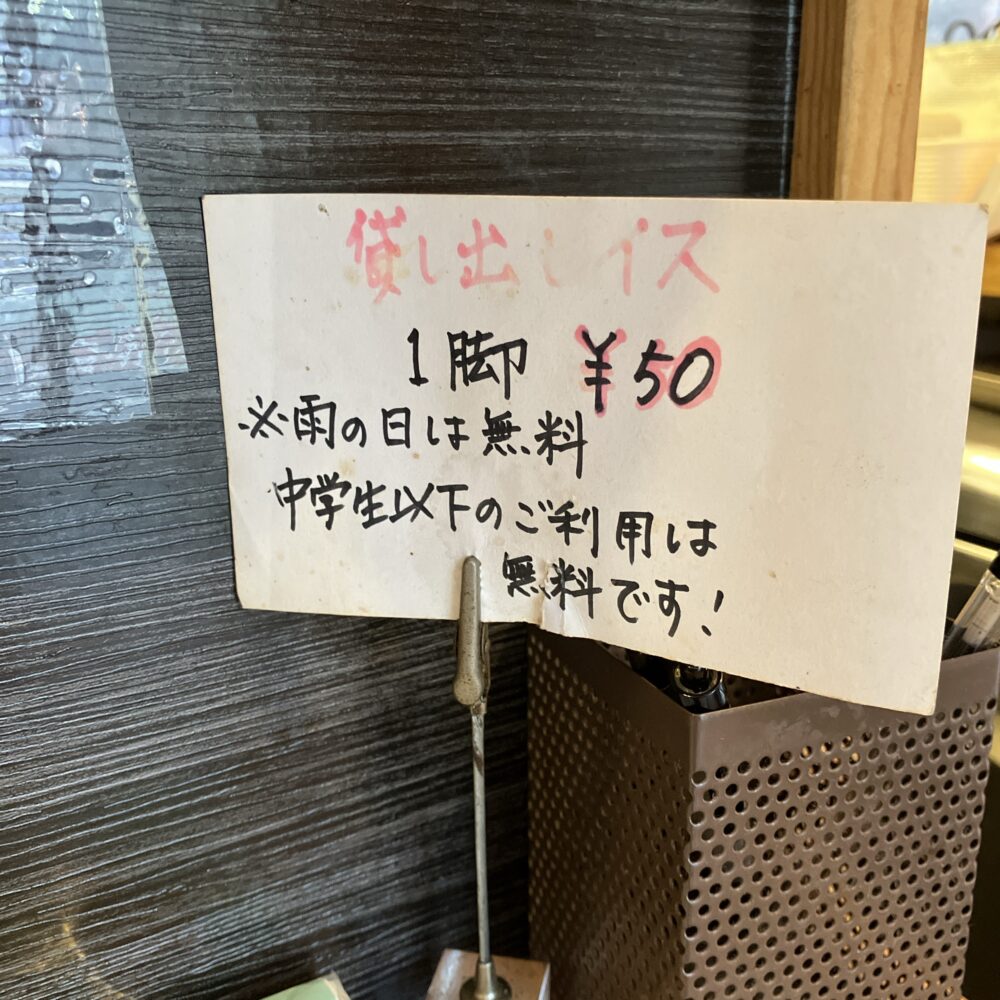 貸し出しイス
1脚 ¥50
※雨の日は無料
中学生以下のご利用は
無料です!